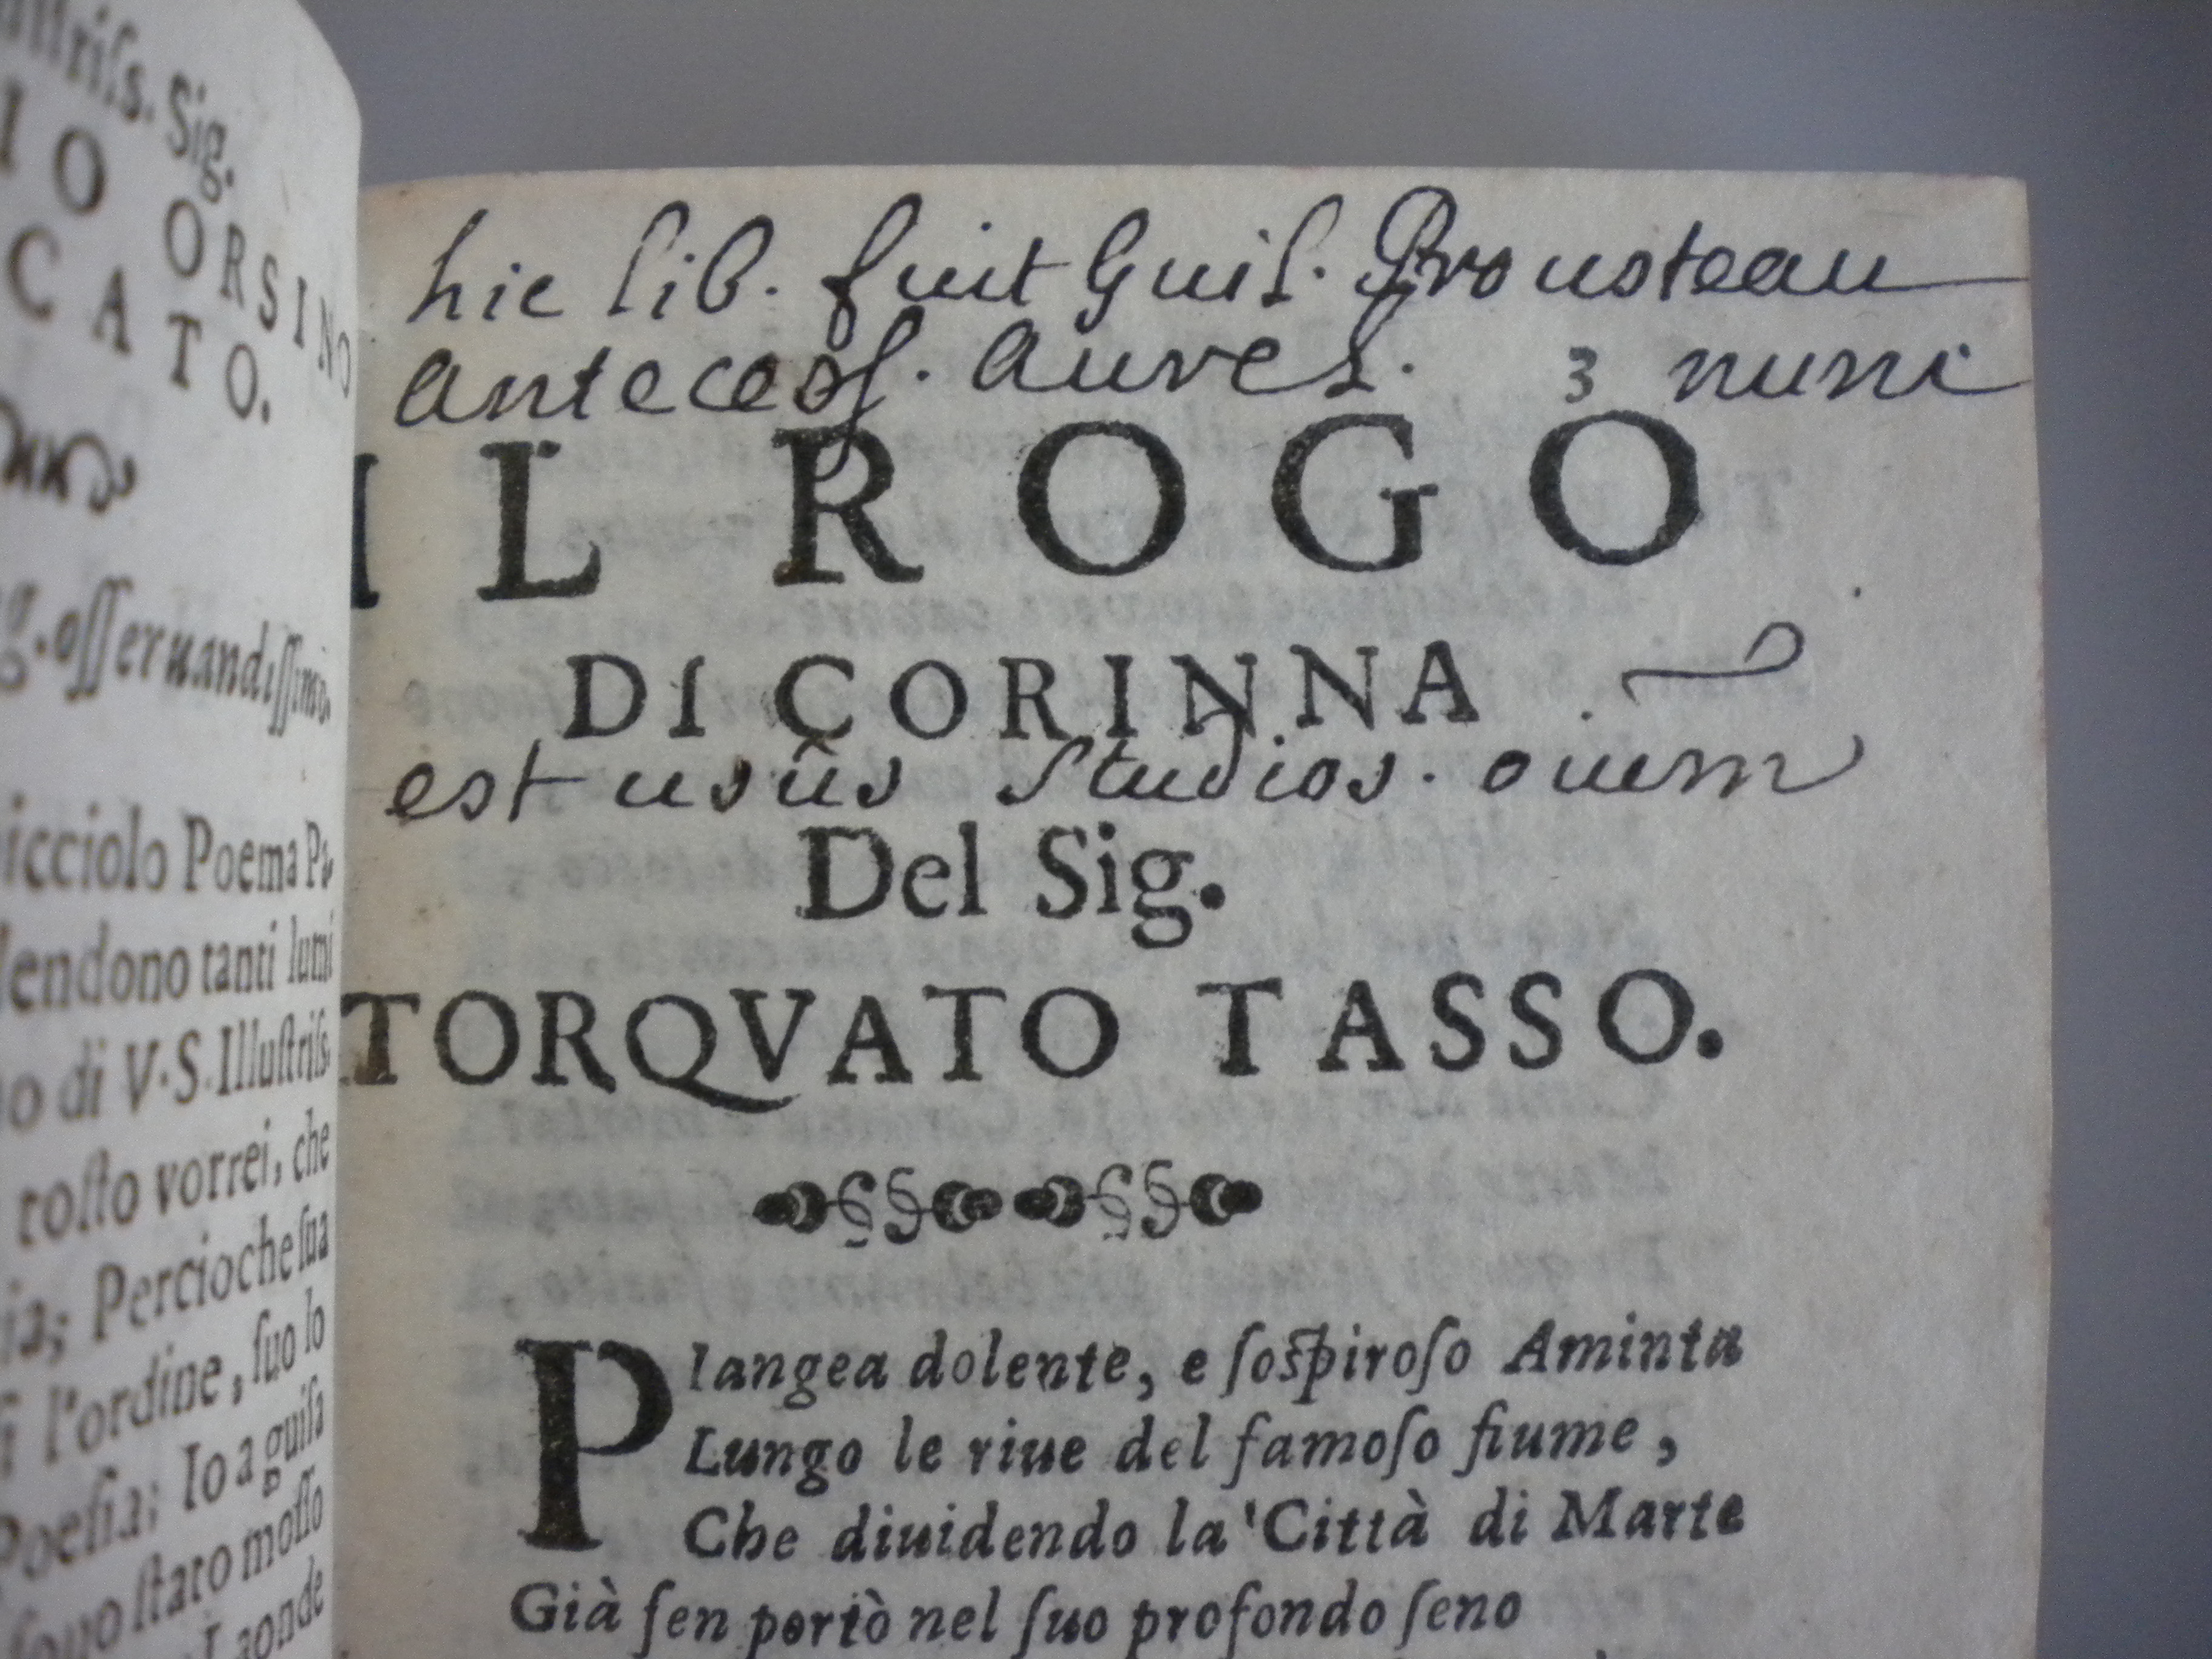 triſs. Sig.
IO ORSINO
CATO.
g. oſſeruandiſſimo.
icciolo Poema Pa-
lendono tanti lumi
o di V.S. Illuſtriſs.
toſto vorrei, che
ia; Percioche ſua
ſi l'ordine, ſuo lo
Poeſia; Io a guiſa
ſtaro moſſo
Laonde
hic lib. fuit Guil. Prousteau
antecess. Aurel. 3 nunc
IL ROGO
DI CORINNA
est usûs studios. ouem
Del Sig.
TORQVATO TASSO.
PIangea dolente, e ſoſpiroſo Aminta
Lungo le riue del famoſo fiume,
Che diuidendo la 'Città di Marte
Già ſen portò nel ſuo profondo ſeno